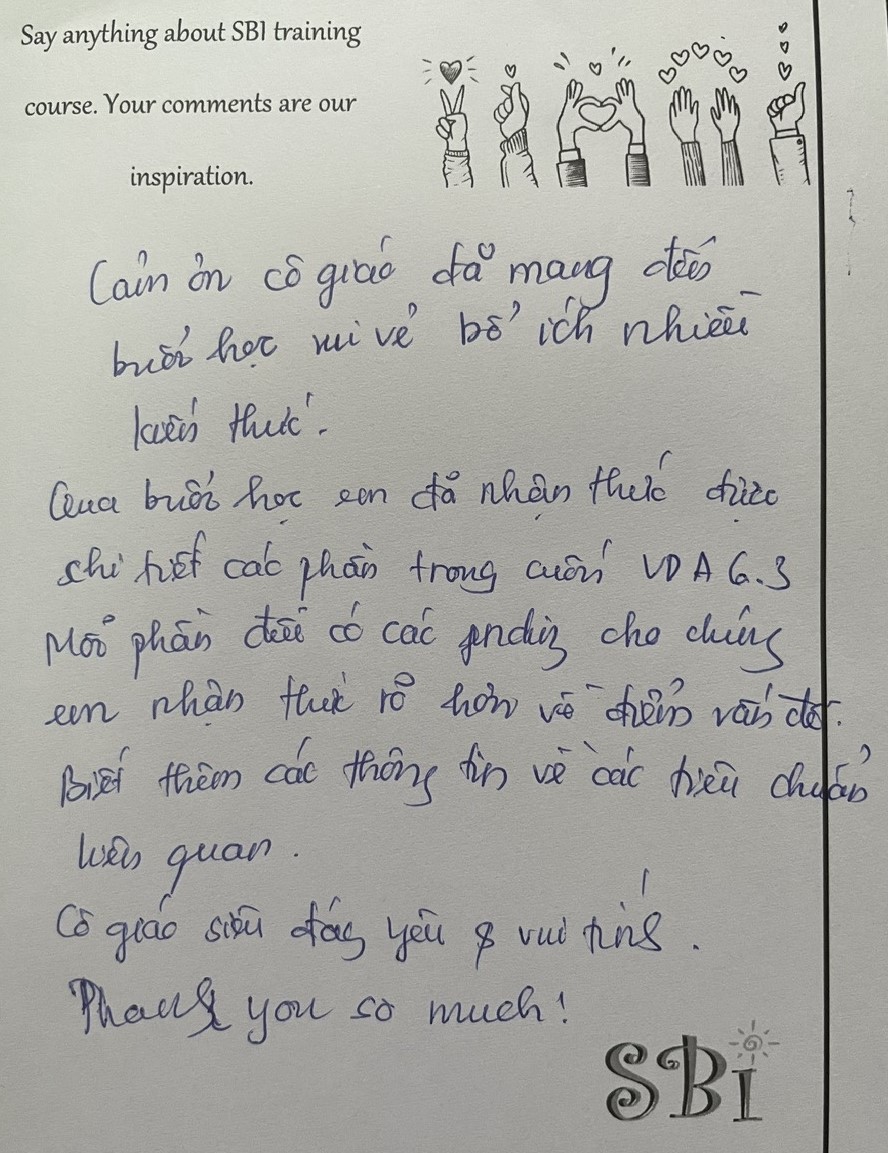 Say anything about SBI training
course. Your comments are our
inspiration.
Cảm ơn cô giáo đã mang đến
buổi học vui vẻ bổ ích nhiều
kiến thức.
Qua buổi học em đã nhận thức được
chi tiết các phần trong cuốn VDA 6.3
Mỗi phần đều có các cho chúng
em nhận thức rõ hơn về điểm vấn đề.
Biết thêm các thông tin về các tiêu chuẩn
liên quan.
Cô giáo siêu đáng yêu & vui tính.
Thank you so much!
SBI